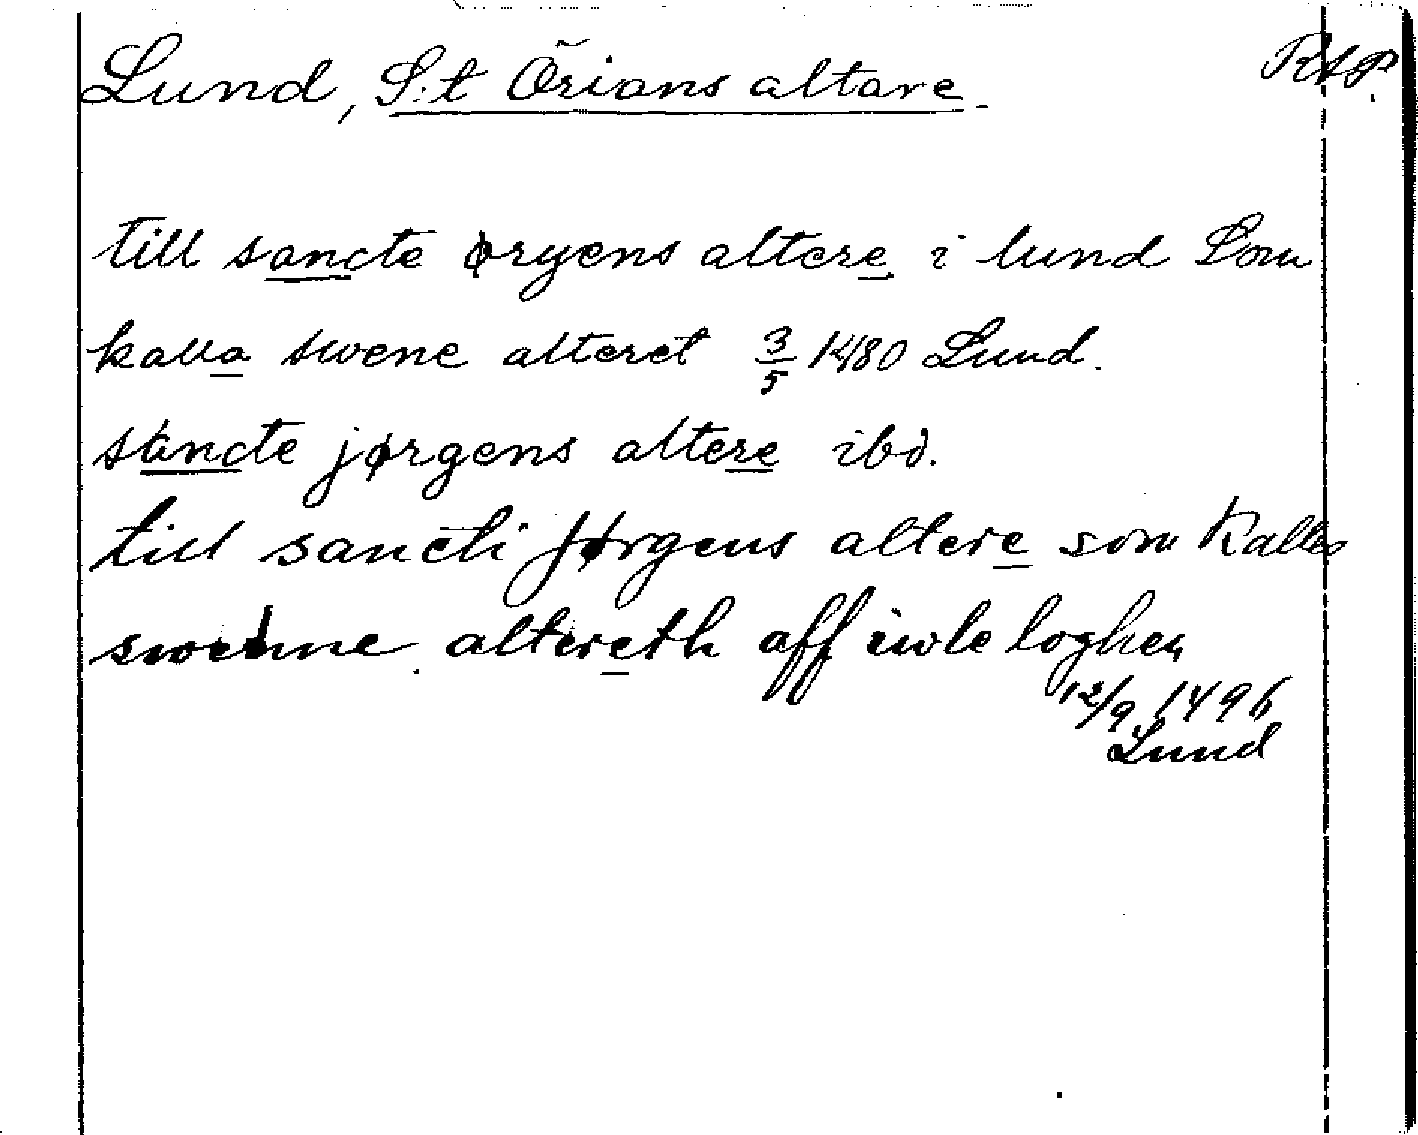 Lund, S:t Örians altare.
RAP.
till sancte øryens altere i lund Som
kalla swene alteret 3/5 1480 Lund.
sancte jørgens altere ibd.
till sancti Jørgens altere som kalles
swenne altereth aff iwle loghen
12/9 1496
Lund